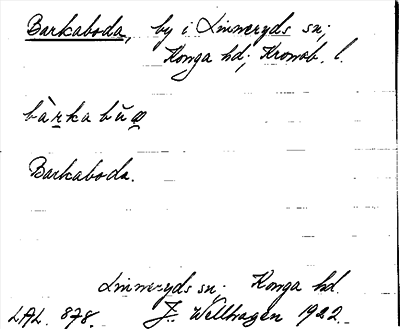 Barkaboda, by i Linneryds sn;
Konga hd; Kronob. l.
bàrka bŭ
Barkaboda.
Linneryds sn; Konga hd.
LAL. 878. J. Wellhagen 1922.